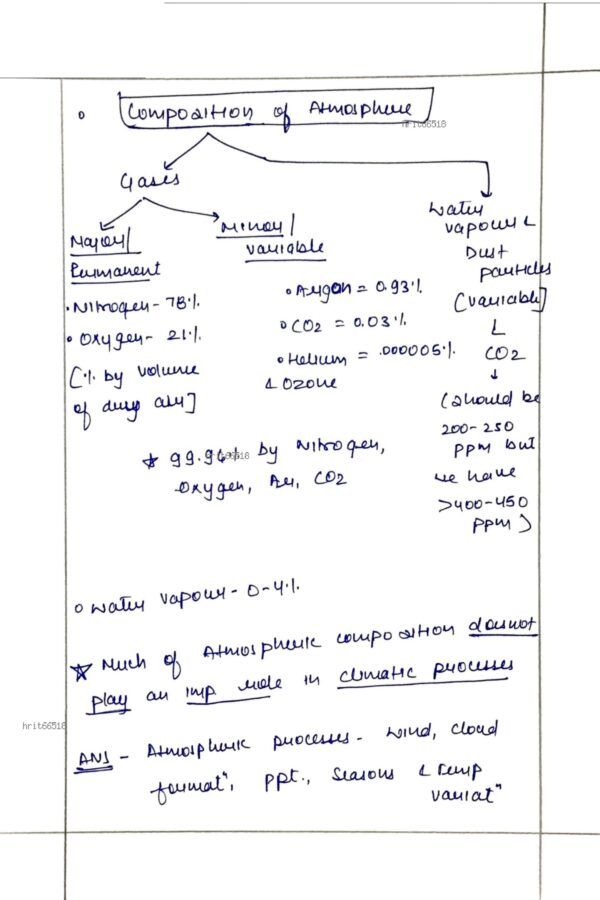 Composition of Atmosphere
hrit66518
Gases
Major/
Permanent
Minor/
variable
Water
vapour &
Dust
particles
[variable]
&
CO2
(should be
200-250
PPM but
we have
>400-450
PPM)
• Nitrogen - 78%
• Oxygen - 21%
[% by volume
of dry air]
• Argon = 0.93%
• CO2 = 0.03%
• Helium = .000005%
& Ozone
99.96% by Nitrogen,
Oxygen, Ar, CO2
Water vapour - 0-4%
Much of Atmospheric composition doesnot
play an imp role in climatic processes
hrit66518
ANS - Atmospheric processes - wind, cloud
formatn, ppt., seasons & temp
variatn